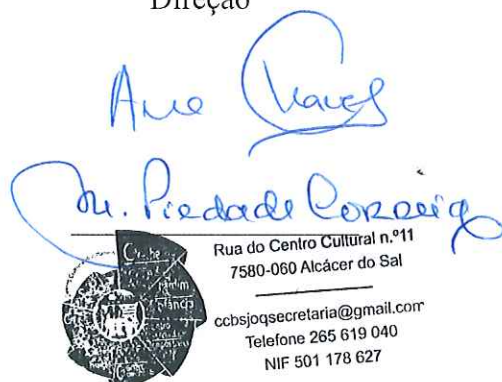 Direção
Ana Chaves
M. Piedade Correia
Rua do Centro Cultural n.º11
7580-060 Alcácer do Sal
ccbsjoqsecretaria@gmail.com
Telefone 265 619 040
NIF 501 178 627
Creche
Jardim
Infância